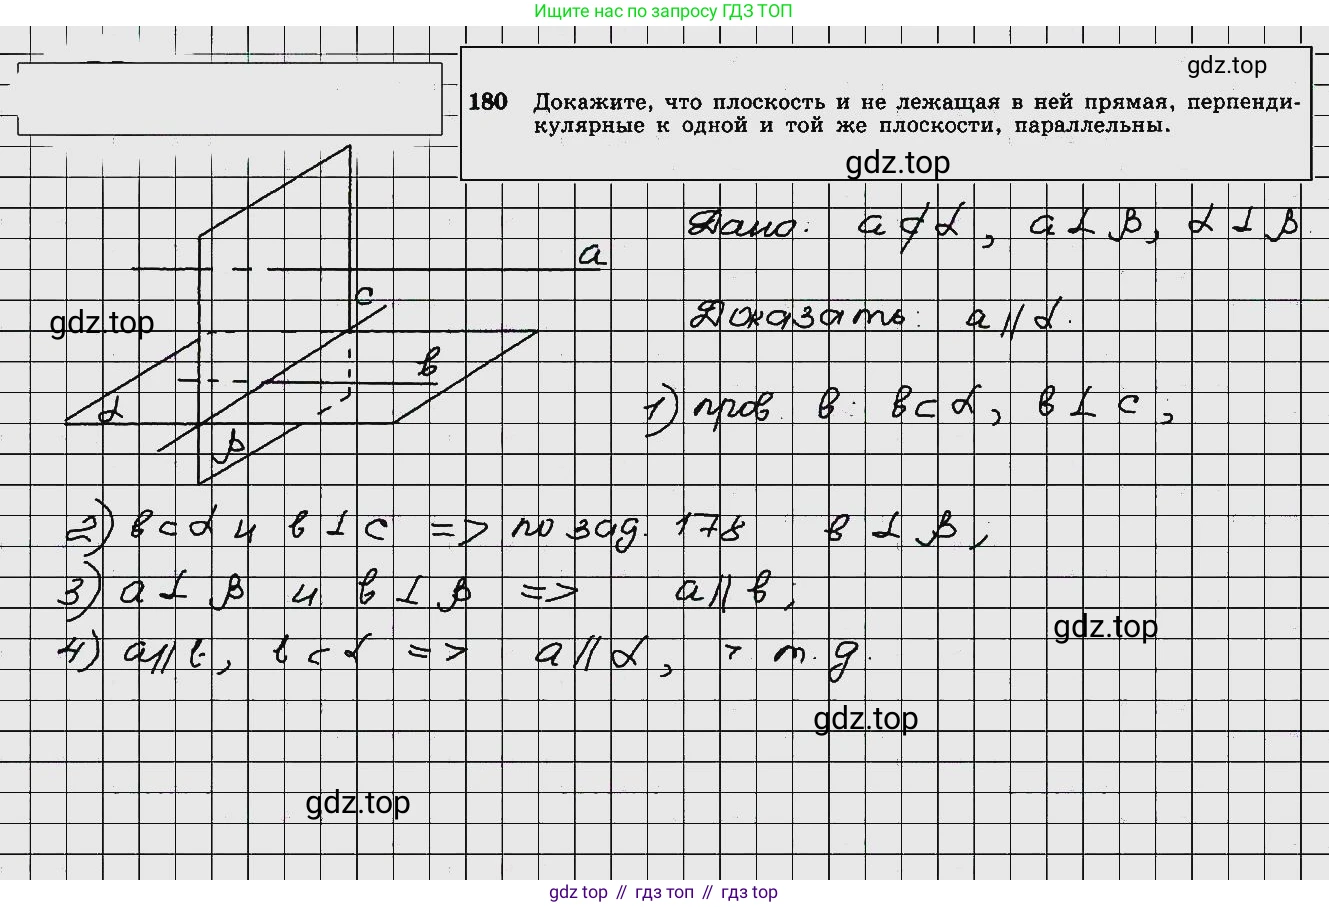 Ищите нас по запросу ГДЗ ТОП
gdz.top
180 Докажите, что плоскость и не лежащая в ней прямая, перпенди-
кулярные к одной и той же плоскости, параллельны.
gdz.top
Дано: a ⊄ α, a ⊥ β, α ⊥ β.
a
c
gdz.top
Доказать: a // α.
в
α
β
1) пров. в: в ⊂ α, в ⊥ c;
2) в ⊂ α и в ⊥ c => по зад. 178 в ⊥ β;
3) a ⊥ β и в ⊥ β => a // в;
gdz.top
4) a // в, в ⊂ α => a // α, ч.т.д.
gdz.top
gdz.top
gdz top // гдз топ // gdz top